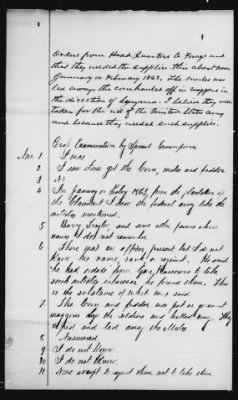 orders from Head Quarters to forage and
that they needed the supplies. this about
January or February 1863. The mules was
led away & the corn hauled off in waggons in
the direction of I believe they were
taken for the use of the United States army
and because they needed such supplies.
Cross Examination by Samuel
Ans 1 I was
2 I saw them get the Corn, mules and fodder
3 No
4 In January or Feby 1863, from the plantation of
the Claimant I saw the federal army take the
articles mentioned.
5 Barry and some other names whose
names I do not remember
6 There was an officer present but I do not
know his name, rank or regiment. He said
he had orders from Gen, to take
such articles wherever he found them. This
is the substance of what was said.
7 The Corn and fodder was put in great
waggons by the soldiers and hauled away. They
and led away the Mules
8 Answered
9 I do not Know
10 I do not Know,
11 None except to request them not to take them.